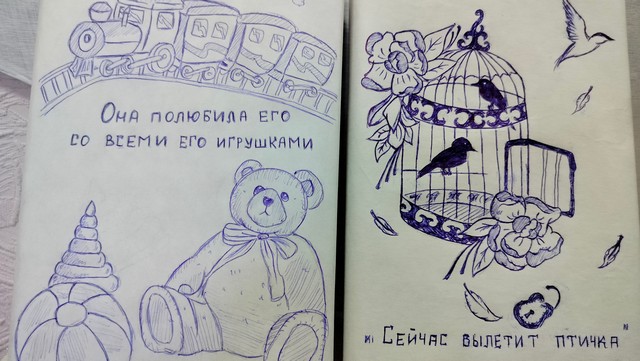 Она полюбила его
со всеми его игрушками
"Сейчас вылетит птичка"